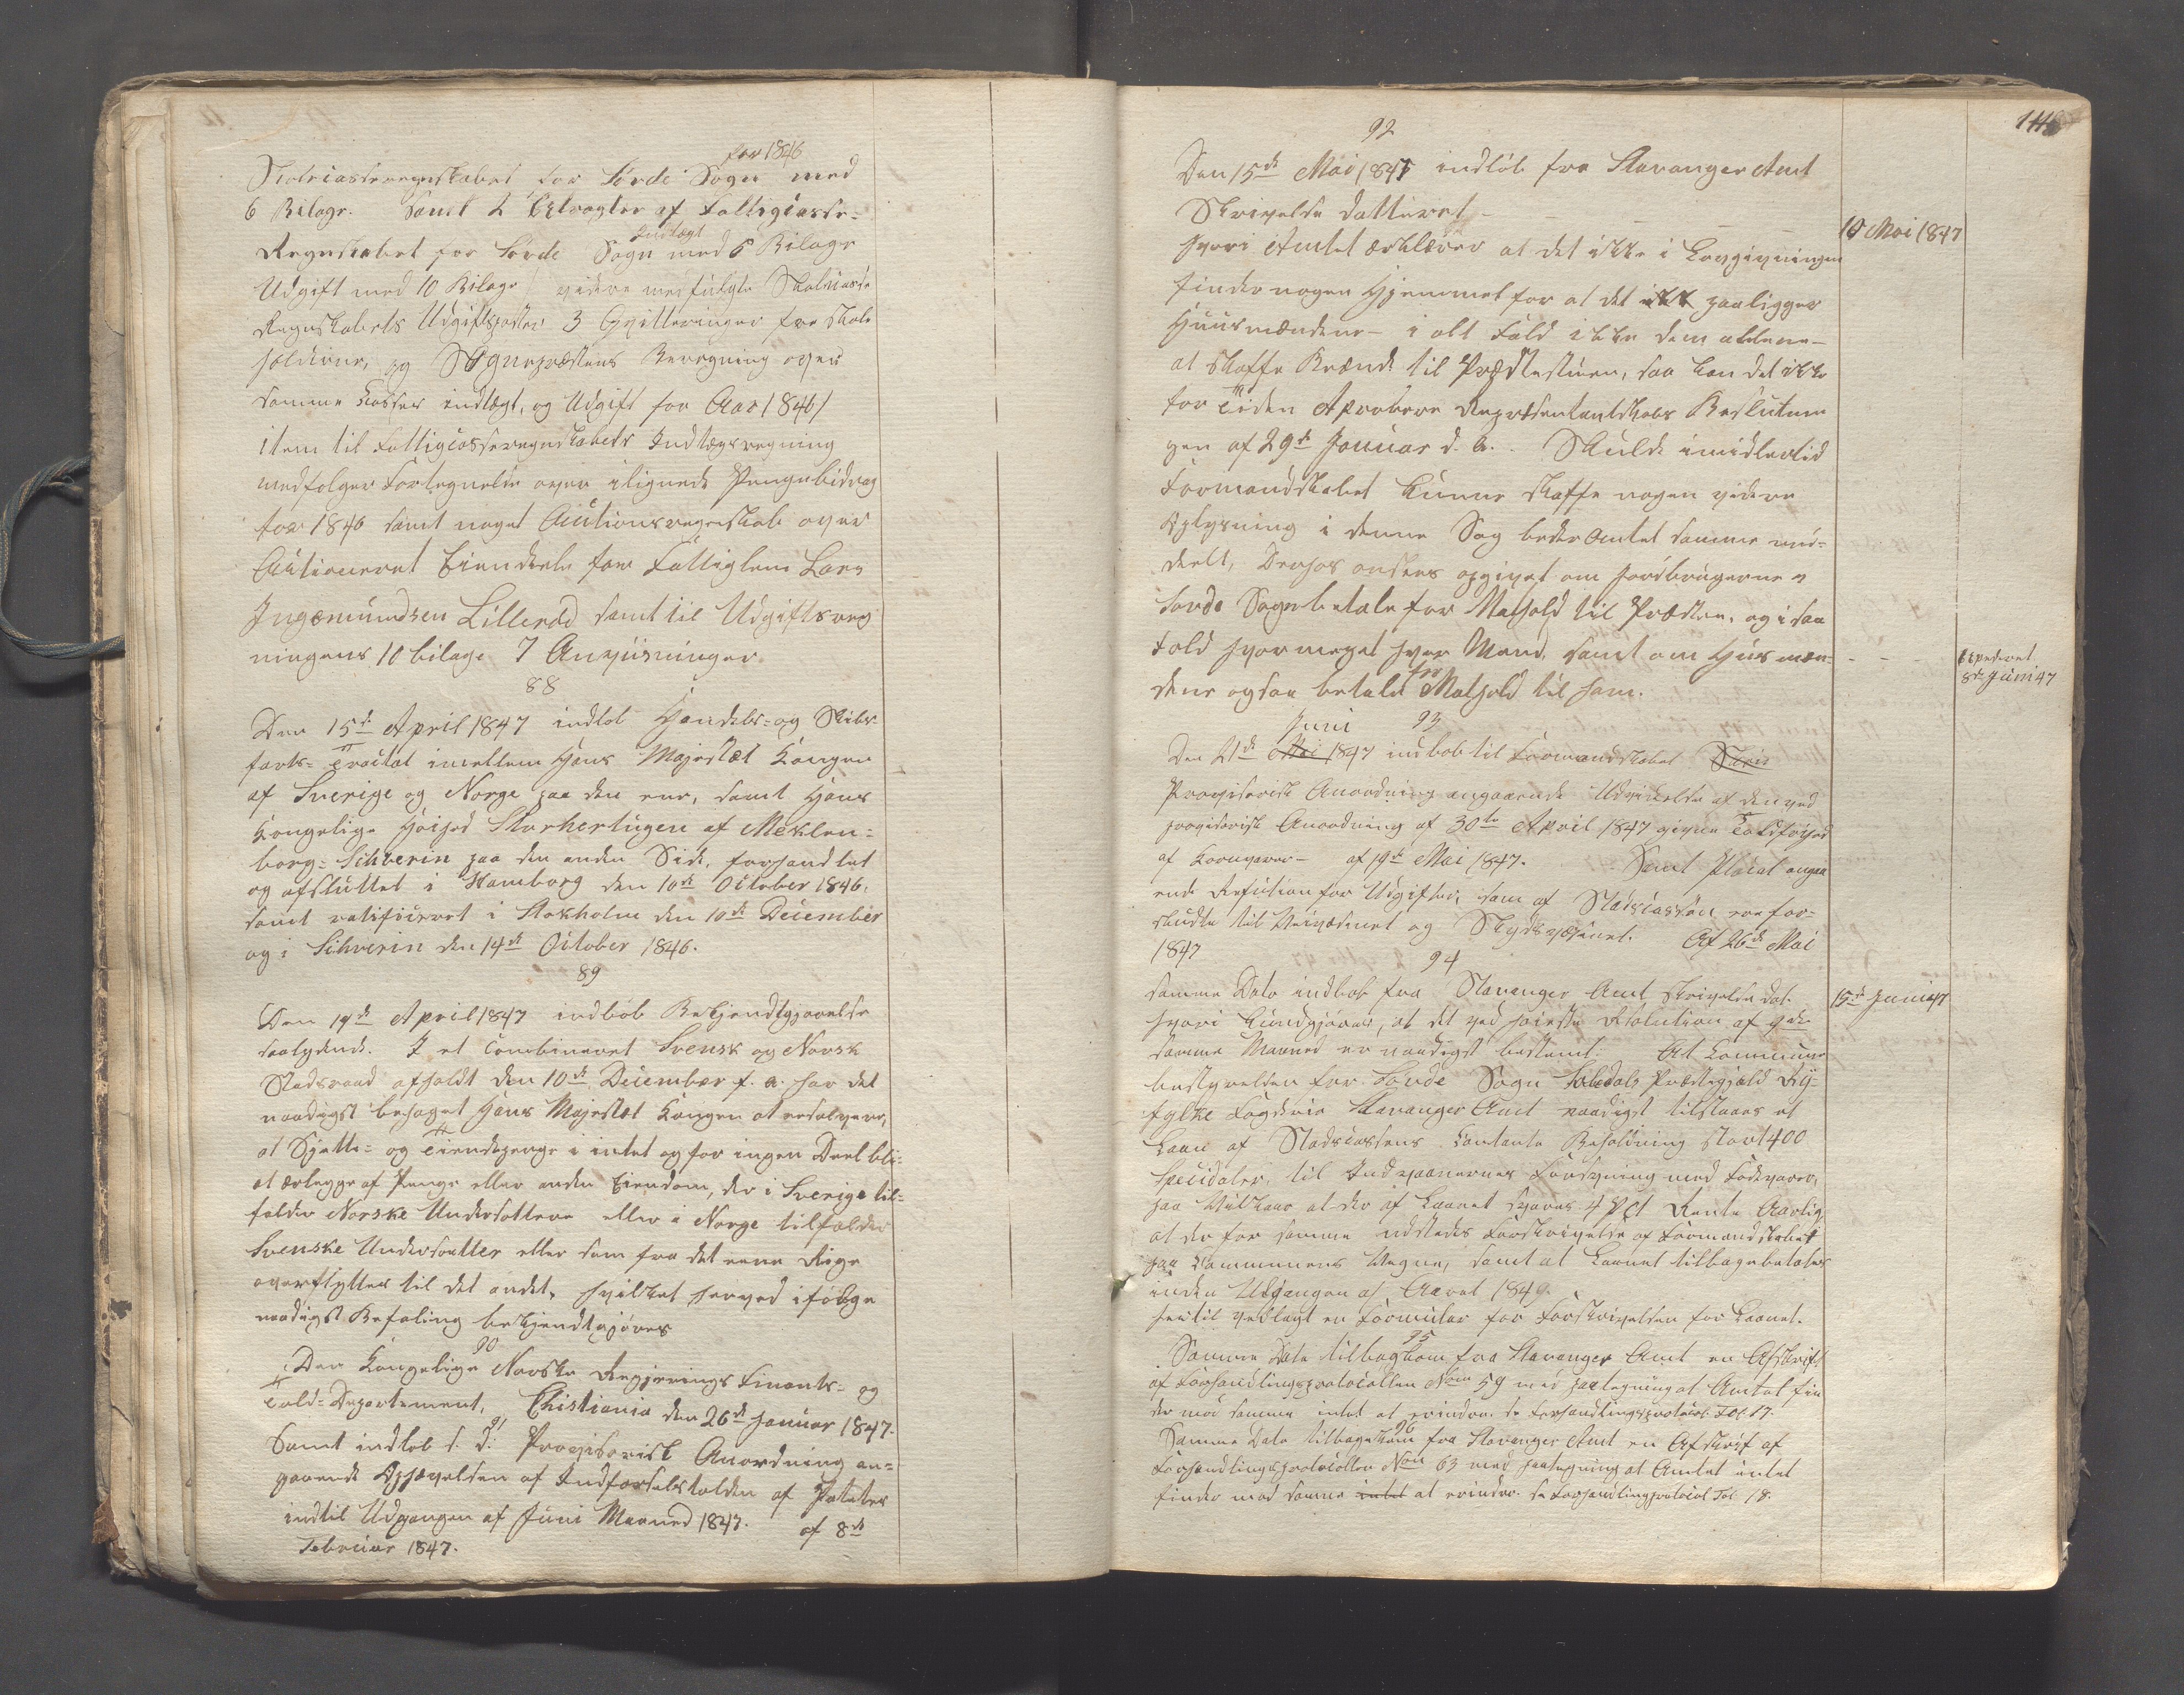 for 1846
Skolecasseregnskabet for Sovde Sogn med
6 Bilage. Samt 2 Extragter af Fattigcasse-
Indtægt
Regnskabet for Sovde Sogn med 5 Bilage
Udgift med 10 Bilage videre medfulgte Skolecasse
Regnskabets Udgiftsposter 3 Qvitteringer fra Skole
holderne, og Sognepræstens Beregning over
samme Casses indtægt, og Udgift for Aar 1846/
item til Fattigcasseregnskabets Indtægsregning
medfølger Fortegnelse over ilignede Pengebidrag
for 1846 samt noget Auctionsregnskab over
Auctioneret Eiendele for Fattiglem Lars
Ingemundsen Lillerød samt til Udgiftsreg
ningens 10 bilage 7 Anviisninger
88
Den 15de April 1847 indløb Handels- og Skibs-
farts- Tractat imellem Hans Majestæt Kongen
af Sverige og Norge paa den ene, samt Hans
Kongelige Høihed Storhertugen af Meklen-
borg-Schverin paa den anden Side, forhandlet
og afsluttet i Hamborg den 10de October 1846.
samt ratificeret i Stokholm den 10de December
og i Schverin den 14de October 1846.
89
Den 19de April 1847 indløb Bekjendtgjørelse
saalydende. I et Combineret Svensk og Norsk
Stadsraad afholdt den 10de December f. a. har det
naadigst behaget Hans Majestæt Kongen at resolvere,
at Sjette- og Tiendepenge i intet og for ingen Deel bli-
at erlægge af Penge eller anden Eiendom, der i Sverige til-
falder Norske Undersotter eller i Norge tilfalder
Svenske Undersaatter eller som fra det eene Rige
overflyttes til det andet, hvilket herved ifølge
naadigst Befaling bekjendtgjøres
90
Den Kongelige Norske Regjerings Finants- og
Told-Departement, Christiania den 26de Januar 1847.
91
Samt indløb s. d: Provisorisk Anordning an-
gaaende Ophævelsen af Indførselstolden af Poteter
indtil Udgangen af Juni Maaned 1847. af 8de
Februar 1847.
118
92
Den 15de Mai 1847 indløb fra Stavanger Amt
Skrivelse datteret -
10 Mai 1847
hvori Amtet erklærer at det ikke i Lovgivningen
finder nogen Hjemmel for at det paaligger
Huusmændene - i alt Fald ikke dem allene -
at skaffe Brænde til Prædstestuen, saa kan det ikke
for Tiden Aprobere Repræsentantskabs Beslutnin
gen af 29de Januar d. A. Skulde imidlertid
Formandskabet kunne skaffe nogen videre
Oplysning i denne Sag beder Amtet samme med-
deelt, Derhos ønskes opgivet om Jordbrugerne i
Sovde Sogn betale for Mathold til Præsten, og i saa
Fald hvormeget hver Mand, samt om Husmæn-
for
dene ogsaa betale Mathold til ham.
Expederet
8de Juni 47
93
Juni
Den 21de Mai 1847 indløb til Formandskabet Skriv
Provisorisk Anordning angaaende Udvidelse af den ved
provisorisk Anordning af 30te April 1847 givne Toldfrihed
af Kornvarer - af 19de Mai 1847. Samt Placat angaa
ende Refusion for Udgifter, som af Statscassen ere for-
skudte til Veivæsenet og Skydsvæsenet. Af 26de Mai
1847
94
Samme Dato indløb fra Stavanger Amt Skrivelse dat.
15de Juni 47
hvori kundgjøres, at det ved høieste Resolution af 9de
samme Maaned er naadigst bestemt: At Commune
bestyrelsen for Sovde Sogn Suledals Præstegjæld Ry-
fylke Fogderie Stavanger Amt naadigst tilstaaes et
Laan af Stadscassens Contante Beholdning stort 400
Speciedaler, til Indvaanernes Forsyning med Fødevarer,
paa Vilkaar at der af Laanet svares 4 pCt Rente Aarlig,
at der for samme udstedes Forskrivelse af Formandskabet
paa Communens Vegne, samt at Laanet tilbagebetales
inden Udgangen af Aaret 1849.
hertil vedlagt en Formular for Forskrivelsen for Laanet.
95
Samme Dato tilbagekom fra Stavanger Amt en Afskrift
af Forhandlingsprotocollen Nom 59 med paategning at Amtet fin
der mod samme intet at erindre. se Forhandlingsprotocol Fol. 17.
96
Samme Dato tilbagekom fra Stavanger Amt en Afskrift af
Forhandlingsprotocollen Nom 63 med paategning at Amtet intet
finder mod samme intet at erindre. se Forhandlingsprotocol Fol. 18.